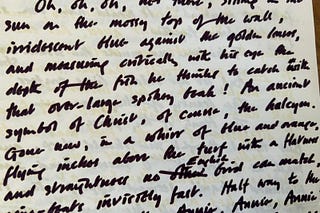 Oh, oh, oh, not there, sitting in the
sun on the mossy top of the wall,
irridescent blue against the golden
and measuring critically with his eye the
depth of the fish he thinks to catch with
that over-large spikey beak! An ancient
symbol of Christ, of course, the halcyon.
Gone now, in a whirr of blue and orange,
flying inches above the turf with a flatness
and straightness no English bird can match,
invisibly fast. Half way to the
Annie, Annie, Annie